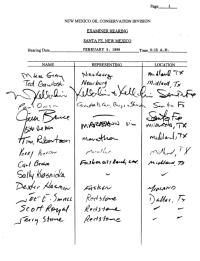 Page 1
NEW MEXICO OIL CONSERVATION DIVISION
EXAMINER HEARING
SANTA FE, NEW MEXICO
Hearing Date FEBRUARY 5, 1998 Time 8:15 A.M.
NAME REPRESENTING LOCATION
Mike Gray Nearburg Midland TX
Ted Gawloski Nearburg Midland, TX
Kellahin & Kellahin Santa Fe
Owen Campbell, Santa Fe
Bruce Santa Fe
MARATHON MIDLAND, TX
Tim Robertson Marathon Midland, TX
Marathon Midland, TX
Carl Brown Fasken Oil & Ranch Midland, TX
Sally
Dexter Fasken MIDLAND
JOE E. Small Redstone Dallas, TX
Scott Royal Redstone
Jerry Stone Redstone